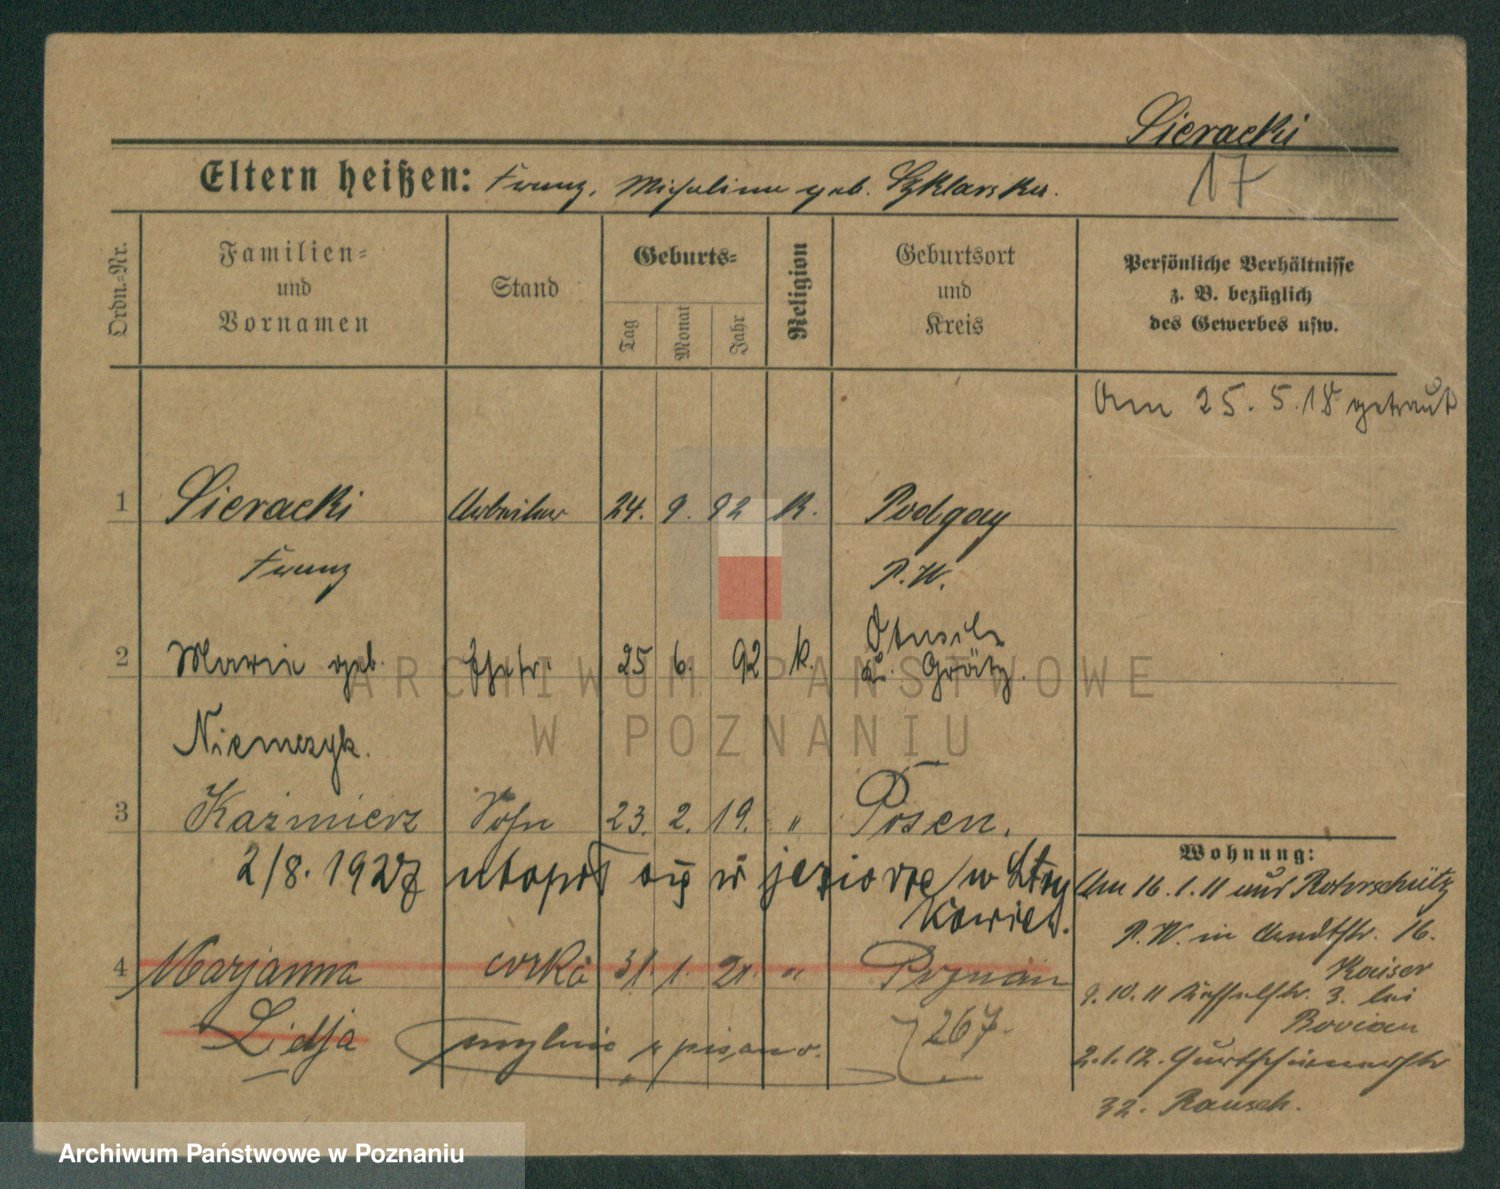 Sieracki
17
Eltern heißen: Franz, Michalina geb. Szklarska.
Ordn.-Nr.
Familien- und Vornamen
Stand
Geburts-
Tag
Monat
Jahr
Religion
Geburtsort und Kreis
Persönliche Verhältnisse
z. B. bezüglich
des Gewerbes usw.
Am 25. 5. 18 getraut
1 Sieracki Arbeiter 24. 9. 92 K. Podgaj
Franz P.W.
2 Marie geb. Ehefr. 25 6. 92 k.
Kr. Grätz.
Niemczyk.
3 Kazimierz Sohn 23. 2. 19. " Posen.
2/8. 1927 utopił się w jeziorze w
Wohnung:
Am 16. 1. 11 aus
P.W. in Arndtstr. 16.
4 Marjanna córka 31. 1. 21. " Poznań
Kaiser
9. 10. 11 3. bei
Lidja mylnie wpisano. 267.
2. 1. 12.
32. Rausch.
ARCHIWUM PAŃSTWOWE
W POZNANIU
Archiwum Państwowe w Poznaniu